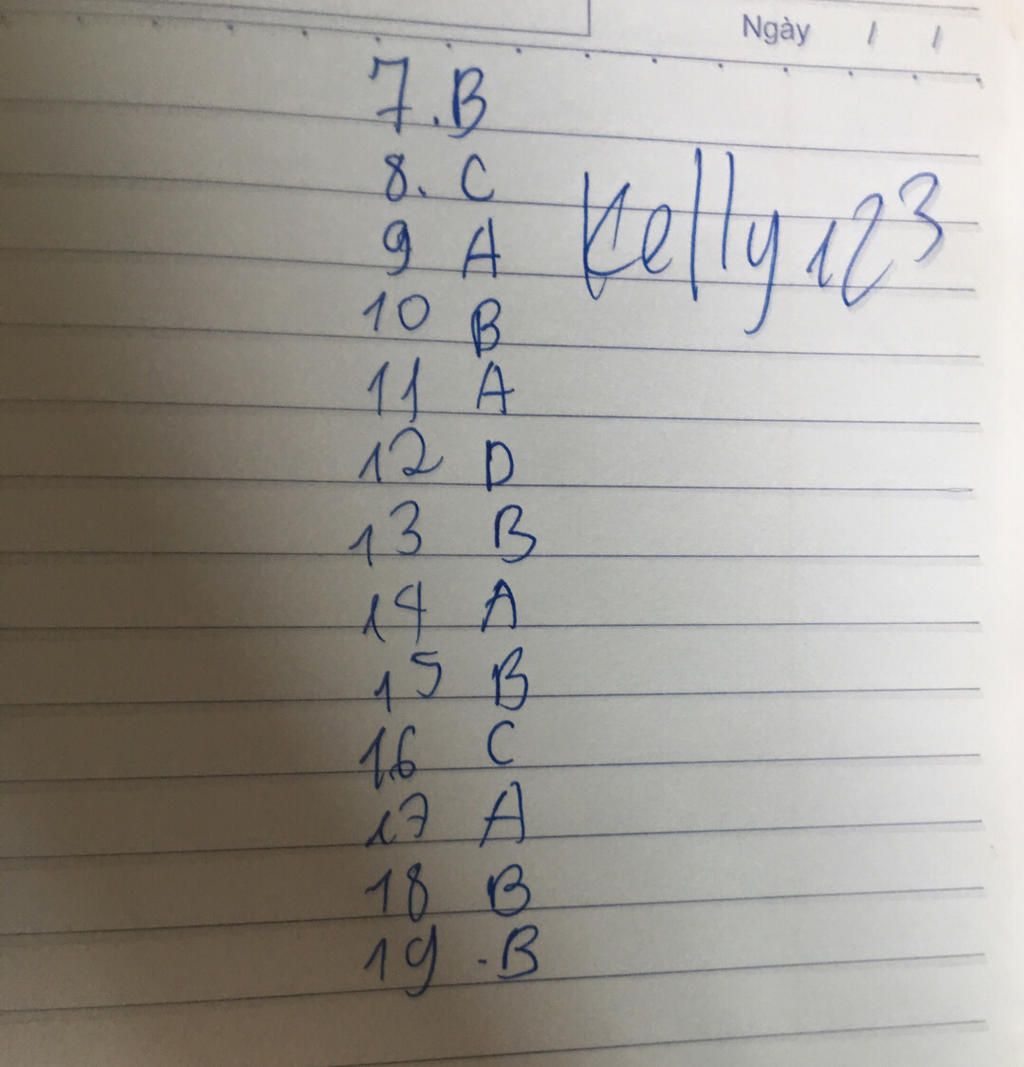 Ngày / /
7.B
8. C
Kelly123
9 A
10 B
11 A
12 D
13 B
14 A
15 B
16 C
17 A
18 B
19 .B